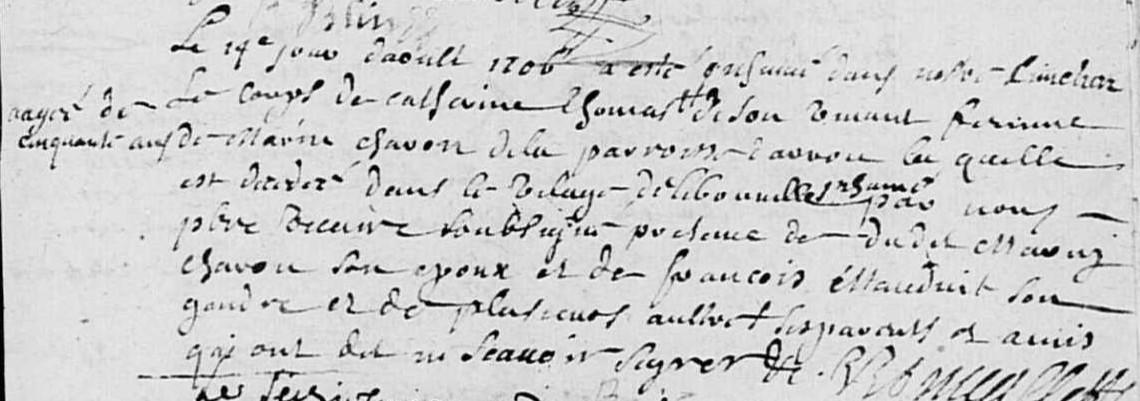 Le 14e jour daoust 1706 a esté inhumé dans nostre Cimetier
aagée de
cinquante ans
Le corps de catherine Thomas de son vivant femme
de Marin chavon de la parroisse darrou la quelle
est decedée dans le vilage de inhumé par nous
pbre vicaire soubsigné presence de dudet Marin
chavon son epoux et de francois Mauduit son
gendre et de plusieurs aultres ses parents et amis
qui ont dit ne scavoir signer